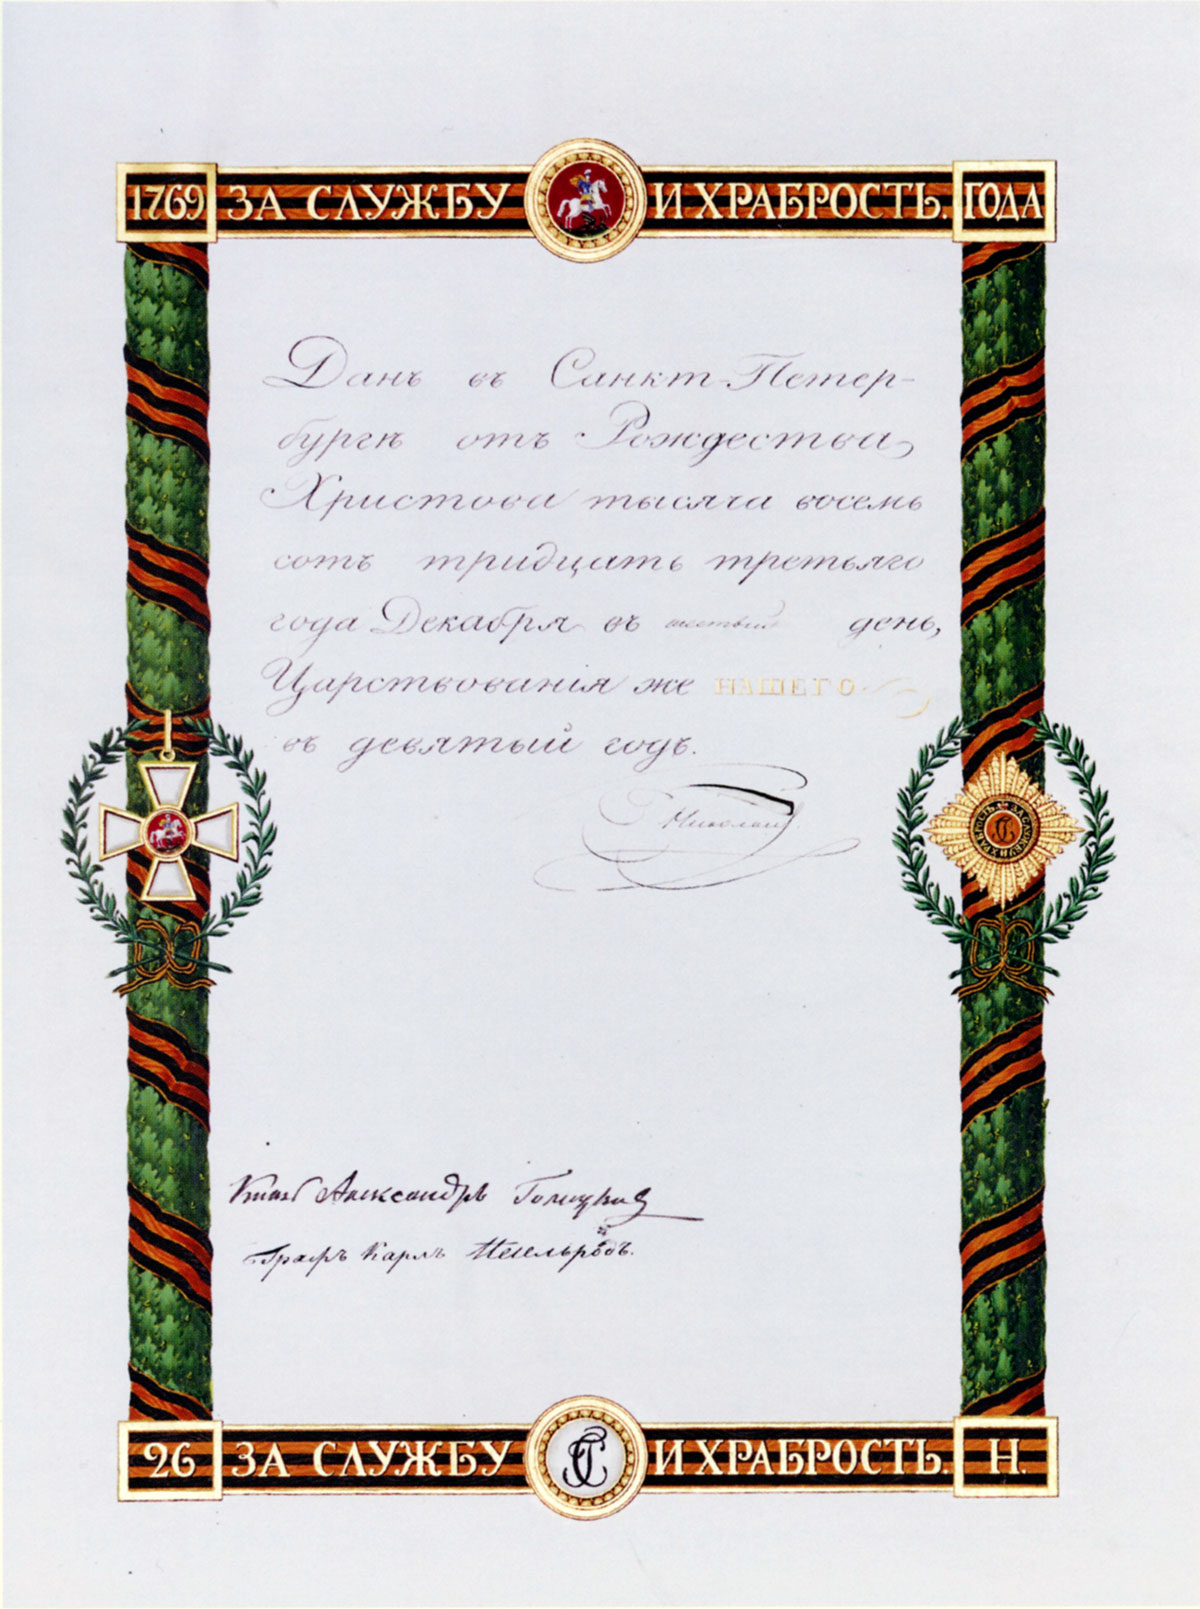 1769 ЗА СЛУЖБУ И ХРАБРОСТЬ. ГОДА
Данъ въ Санкт-Петер-
бургѣ отъ Рождества
Христова тысяча восемь
сотъ тридцать третьяго
года Декабря въ шестый день,
Царствованія же НАШЕГО
въ девятый годъ.
Николай
ЗА СЛУЖБУ И ХРАБРОСТЬ
Князь Александръ Голицынъ
Графъ Карлъ Нессельродъ.
26 ЗА СЛУЖБУ И ХРАБРОСТЬ. Н.